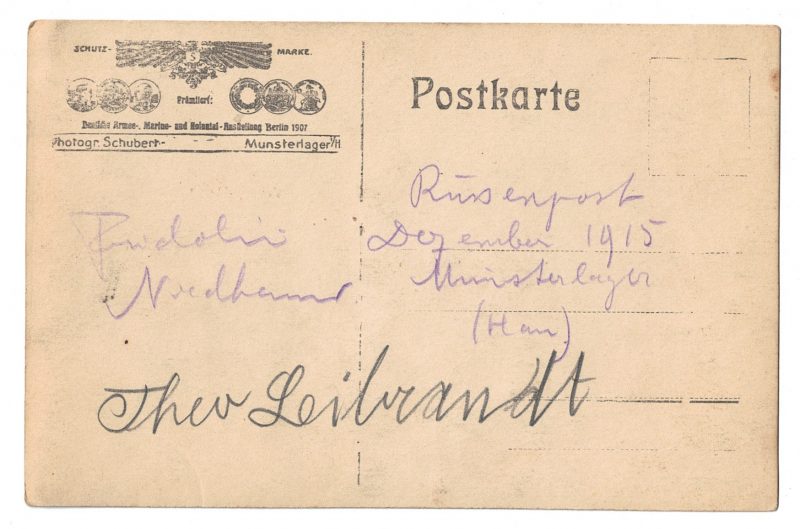 SCHUTZ- MARKE.
S
Prämiiert:
Deutsche Armee-, Marine- und Kolonial-Ausstellung Berlin 1907
Photogr. Schubert- Munsterlager i/H
Postkarte
Fridolin
Russenpost
Dezember 1915
Munsterlager
(Han)
Theo Leibrandt